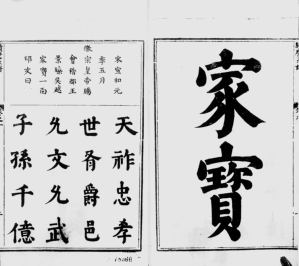 家寶
宋宣和元
秊五月
徽宗皇帝賜
會稽郡王
景臻吳越
家寶一面
印文曰
天祚忠孝
世胥爵邑
允文允武
子孫千億